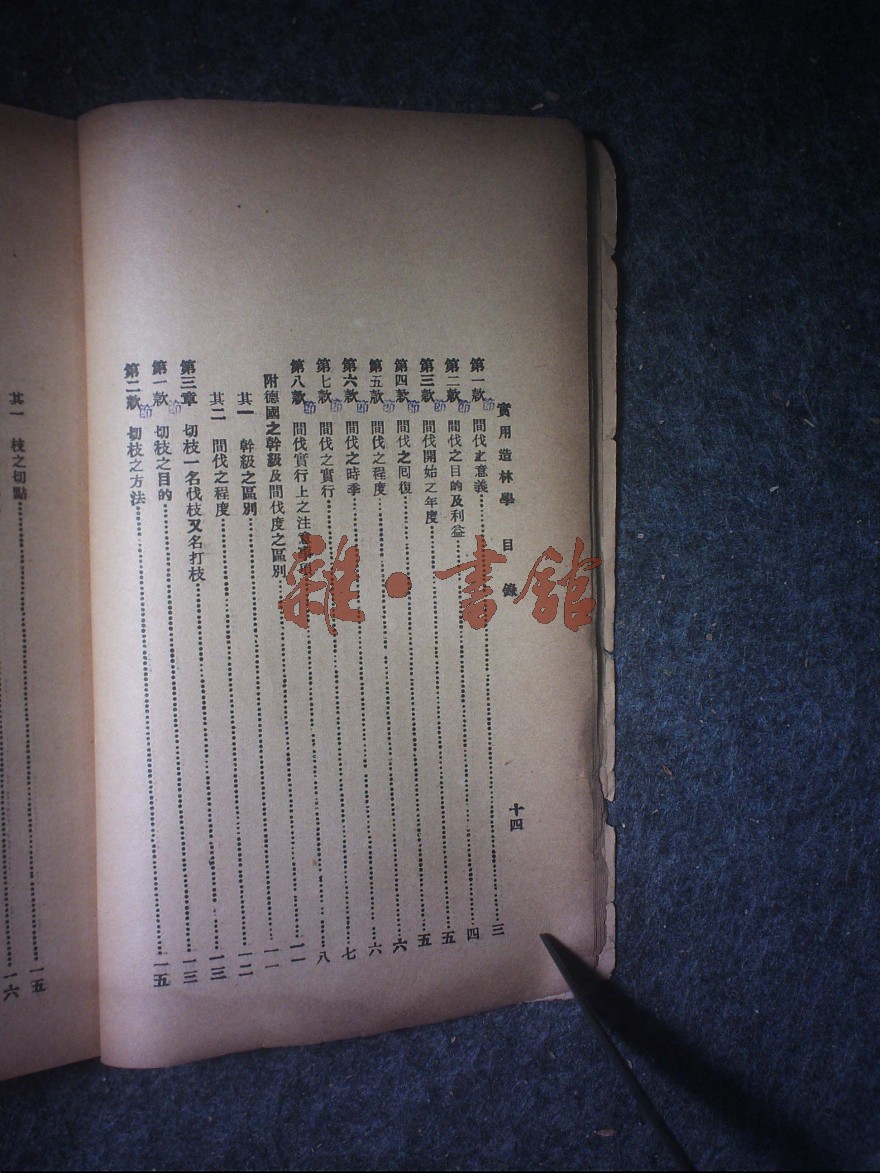 實用造林學 目錄 十四
第一款 間伐之意義……三
第二款 間伐之目的及利益……四
第三款 間伐開始之年度……五
第四款 間伐之囘復……五
第五款 間伐之程度……六
第六款 間伐之時季……六
第七款 間伐之實行……七
第八款 間伐實行上之注意事項……八
附德國之幹級及間伐度之區別……一一
其一 幹級之區別……一一
其二 間伐之程度……一二
第三章 切枝一名伐枝又名打枝……一三
第一款 切枝之目的……一三
第二款 切枝之方法……一五
其一 枝之切點……一五
一六
雜·書館